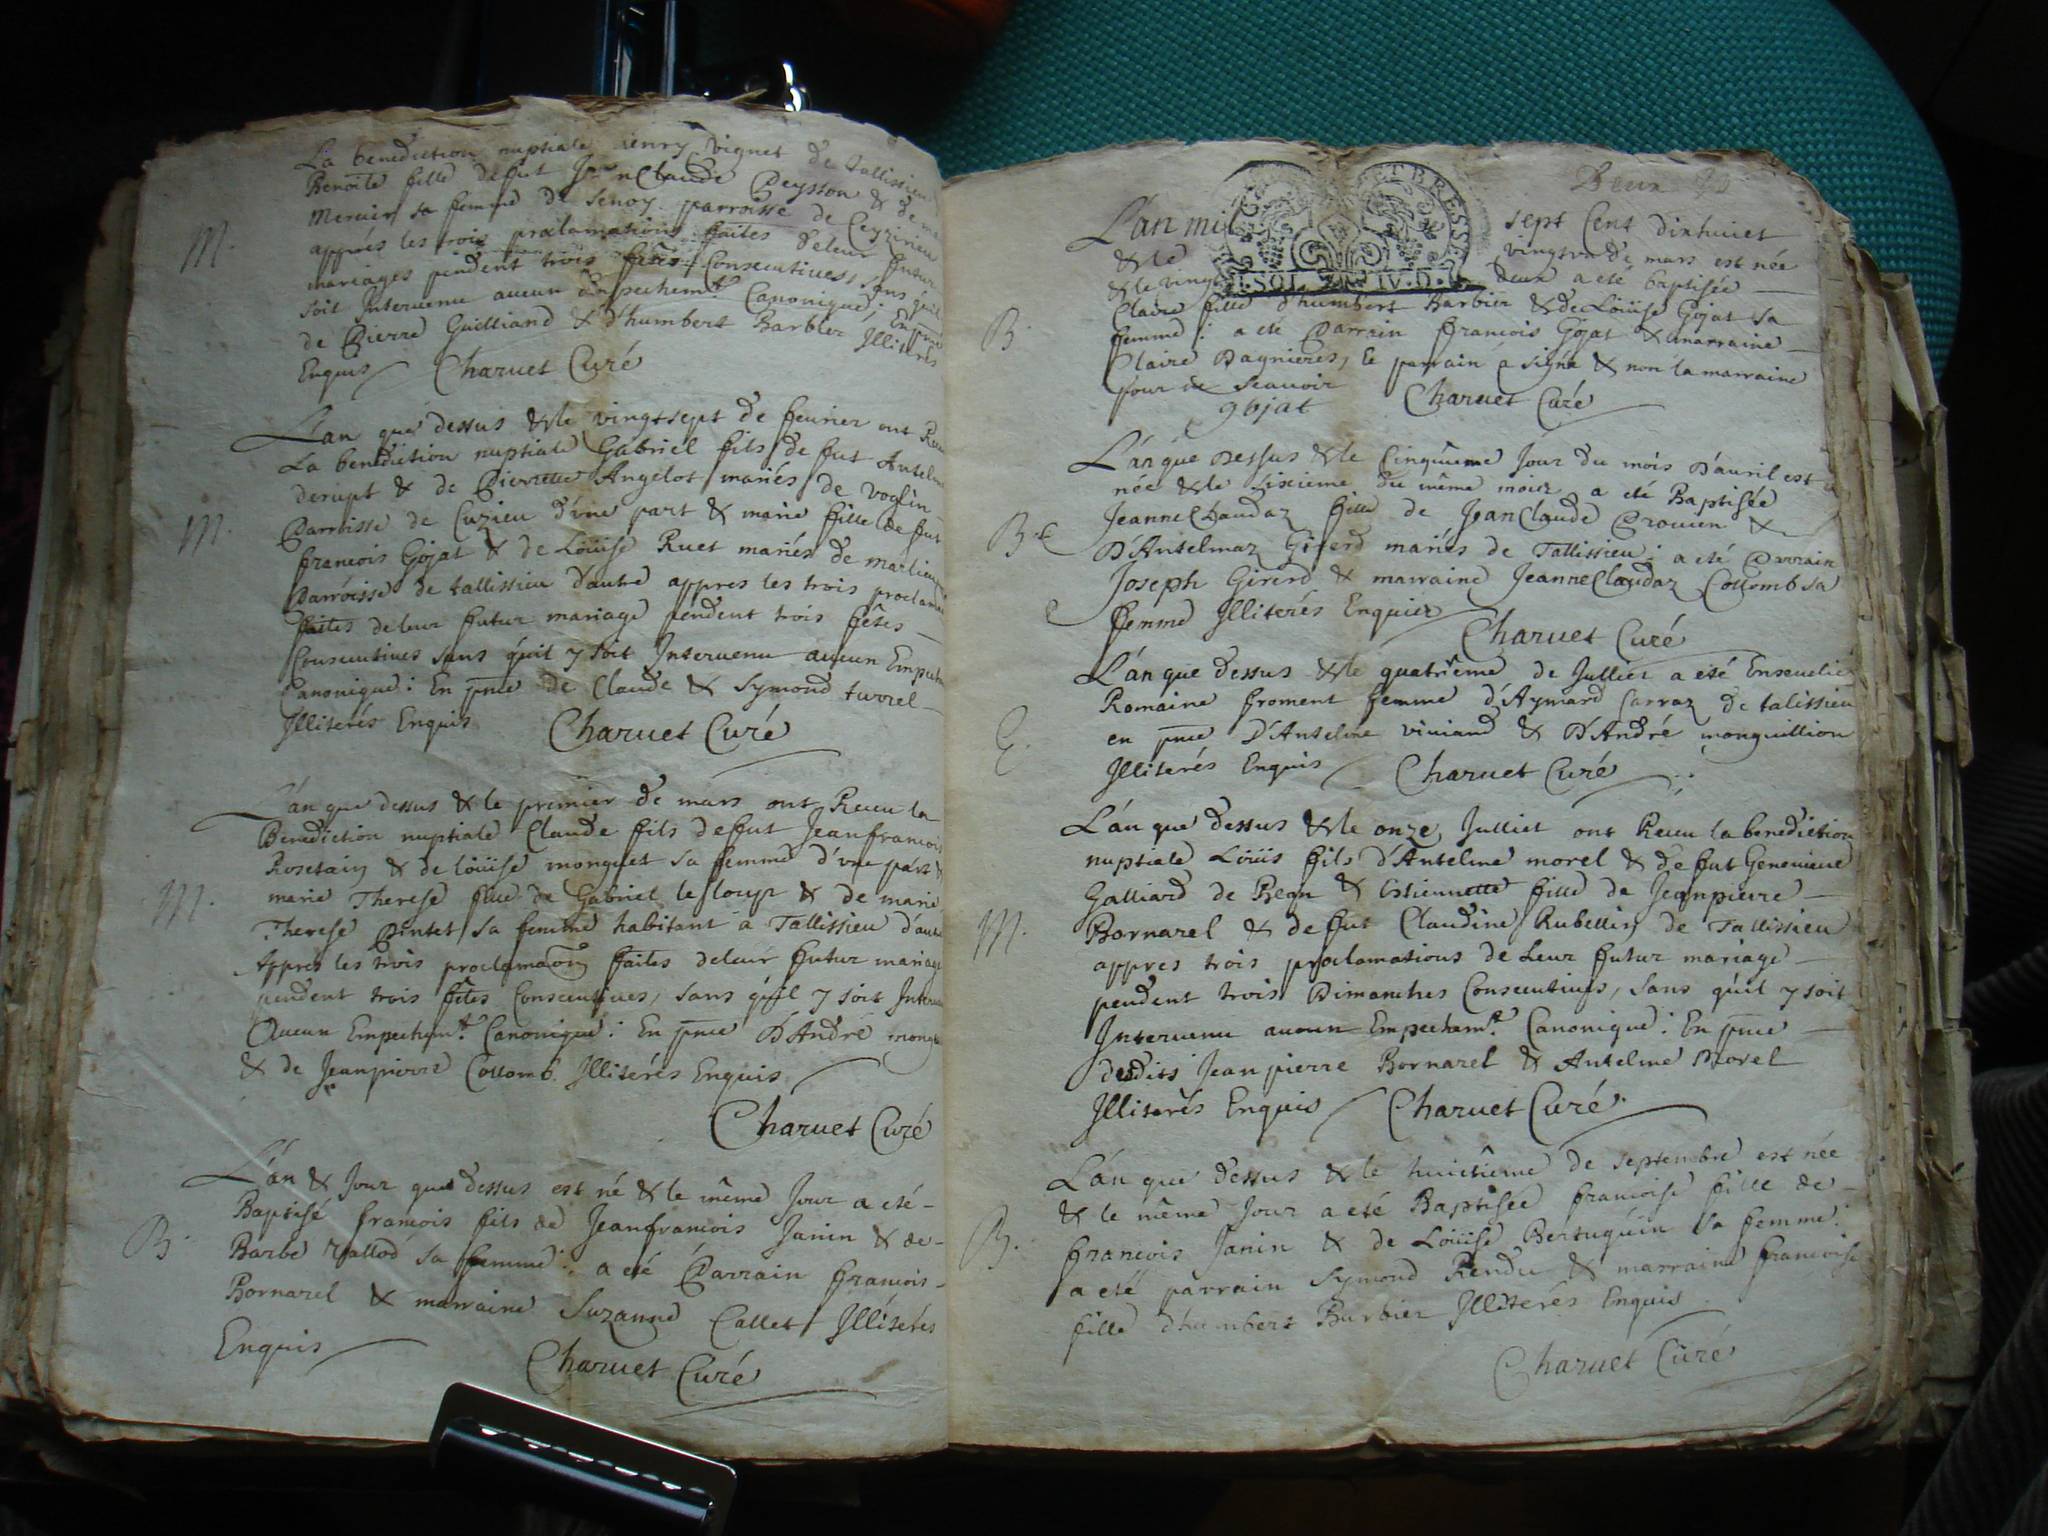 La benediction nuptiale henry vignet de tallissieu
Benoite fille de fut Jean Claude Peysson & de
Mercier sa femme de Senoy parroisse de Ceyzirieu
M.
appres les trois proclamations faites de leur futur
mariages pendent trois fêtes Consecutives, sans qu'il
soit Intervenu aucun Empechemt. Canonique; En pnce
de Pierre Guilliand & d'humbert Barbier Illiterés
Enquis Charvet Curé
L'an que dessus & le vingt sept de fevrier ont Receu
La benediction nuptiale Gabriel fils de fut Antelme
derupt & de Pierrette Angelot mariés de voglin
M.
Parroisse de Cuzieu d'une part & marie fille de fut
francois Gojat & de Loüise Ruet mariés de marlieu
Parroisse de tallissieu d'autre appres les trois proclama
faites de leur futur mariage pendent trois fêtes
Consecutives sans qu'il y soit Intervenu aucun Empeche
Canonique: En pnce de Claude & Symond turrel
Illiterés Enquis Charvet Curé
L'an que dessus & le premier de mars ont Receu la
Benediction nuptiale Claude fils de fut Jean francois
Rosetain & de loüise monguet sa femme d'vne part &
M.
marie Therese fille de Gabriel le sloup & de marie
Therese Pintet sa femme habitant à Tallissieu d'autre
Appres les trois proclamaõns faites de leur futur mariage
pendent trois fêtes Consecutives, sans qu'il y soit Interve
Aucun Empechemt. Canonique: En pnce D'André mong
& de Jean pierre Collomb Illiterés Enquis
Charvet Curé
L'an & Jour que dessus est né & le même Jour a eté
Baptisé francois fils de Jean francois Janin & de
B.
Barbe sa femme: a eté Parrain francois
Bornarel & marraine Suzanne Callet Illiterés
Enquis Charvet Curé
Deux
L'an mil sept Cent dixhuiet
& le vingtvn de mars est née
& le vingt deux a eté baptisée
SOL IV. D.
ET BRESSE
Claire fille d'humbert Barbier & de Loüise Gojat sa
B.
femme: a eté Parrain francois Gojat & marraine
Claire Dagnieres, le parrain a signé & non la marraine
pour ne scavoir
gojat Charvet Curé
L'an que Dessus & le Cinquieme Jour du mois D'avril est
née & le sixieme du même mois a eté Baptisée
Jeanne Claudaz fille de Jean Claude Prouven &
B.
D'Antelmaz Girerd mariés de Tallissieu: a eté Parrain
Joseph Girerd & marraine Jeanne Claudaz Collomb sa
femme Illiterés Enquis
Charvet Curé
L'an que dessus & le quatrieme de Julliet a eté Ensevelie
Romaine froment femme d'Aymard Carraz de talissieu
E.
en pnce D'Antelme viviand & D'André monguillion
Illiterés Enquis Charvet Curé
L'an que dessus & le onze Julliet ont Receu la benediction
nuptiale Loüis fils d'Antelme morel & de fut Genevieve
Galliard de Beon & Estiennette fille de Jean pierre
M.
Bornarel & de fut Claudine Rubellin de Tallissieu
appres trois proclamations de Leur futur mariage
pendent trois Dimanches Consecutives, sans qu'il y soit
Intervenu aucun Empechemt. Canonique: En pnce
desdits Jean pierre Bornarel & Antelme Morel
Illiterés Enquis Charvet Curé
L'an que dessus & le huitieme de septembre est née
& le même Jour a eté Baptisée francoise fille de
B.
francois Janin & de Loüise Bertuguin sa femme:
a eté parrain Symond Rendu & marraine francoise
fille d'humbert Barbier Illiterés Enquis
Charvet Curé